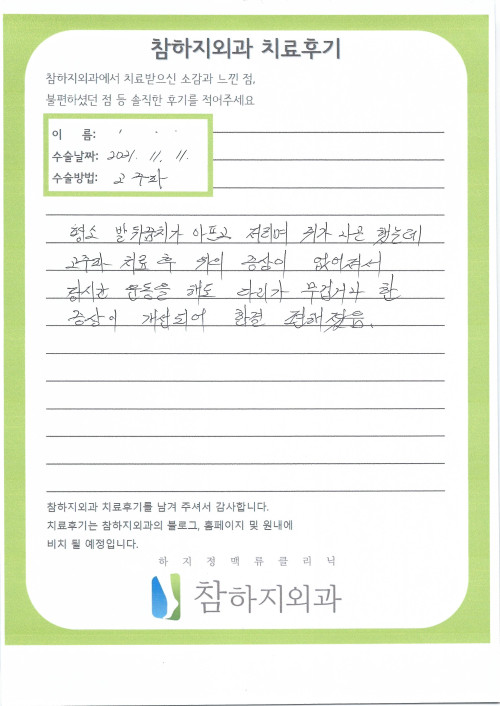 참하지외과 치료후기
참하지외과에서 치료받으신 소감과 느낀 점,
불편하셨던 점 등 솔직한 후기를 적어주세요
이 름:
수술날짜: 2021. 11. 11.
수술방법: 고주파
평소 발뒤꿈치가 아프고 저리며 쥐가 나곤 했는데
고주파 치료 후 위의 증상이 없어져서
장시간 운동을 해도 다리가 무겁거나 한
증상이 개선되어 한결 편해졌음.
참하지외과 치료후기를 남겨 주셔서 감사합니다.
치료후기는 참하지외과의 블로그, 홈페이지 및 원내에
비치 될 예정입니다.
하지정맥류클리닉
참하지외과